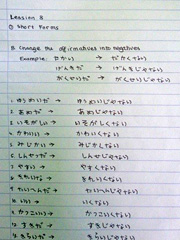 Lession 8
① Short Forms
B. Change the affirmatives into negatives
Example: たかい → たかくない
げんきだ → げんきじゃない
がくせいだ → がくせいじゃない
1. ゆうめいだ → ゆうめいじゃない
2. あめだ → あめじゃない
3. いそがしい → いそがしくない
4. かわいい → かわいくない
5. みじかい → みじかくない
6. しんせつだ → しんせつじゃない
7. やすい → やすくない
8. きれいだ →
9. たいへんだ → たいへんじゃない
10. いい → 
11. かっこいい → かっこくない
12. すきだ → すきじゃない
きらいじゃない